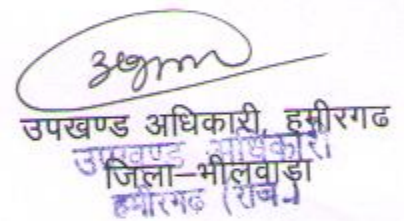 उपखण्ड अधिकारी, हमीरगढ
उपखण्ड अधिकारी
जिला–भीलवाड़ा
हमीरगढ (राज.)